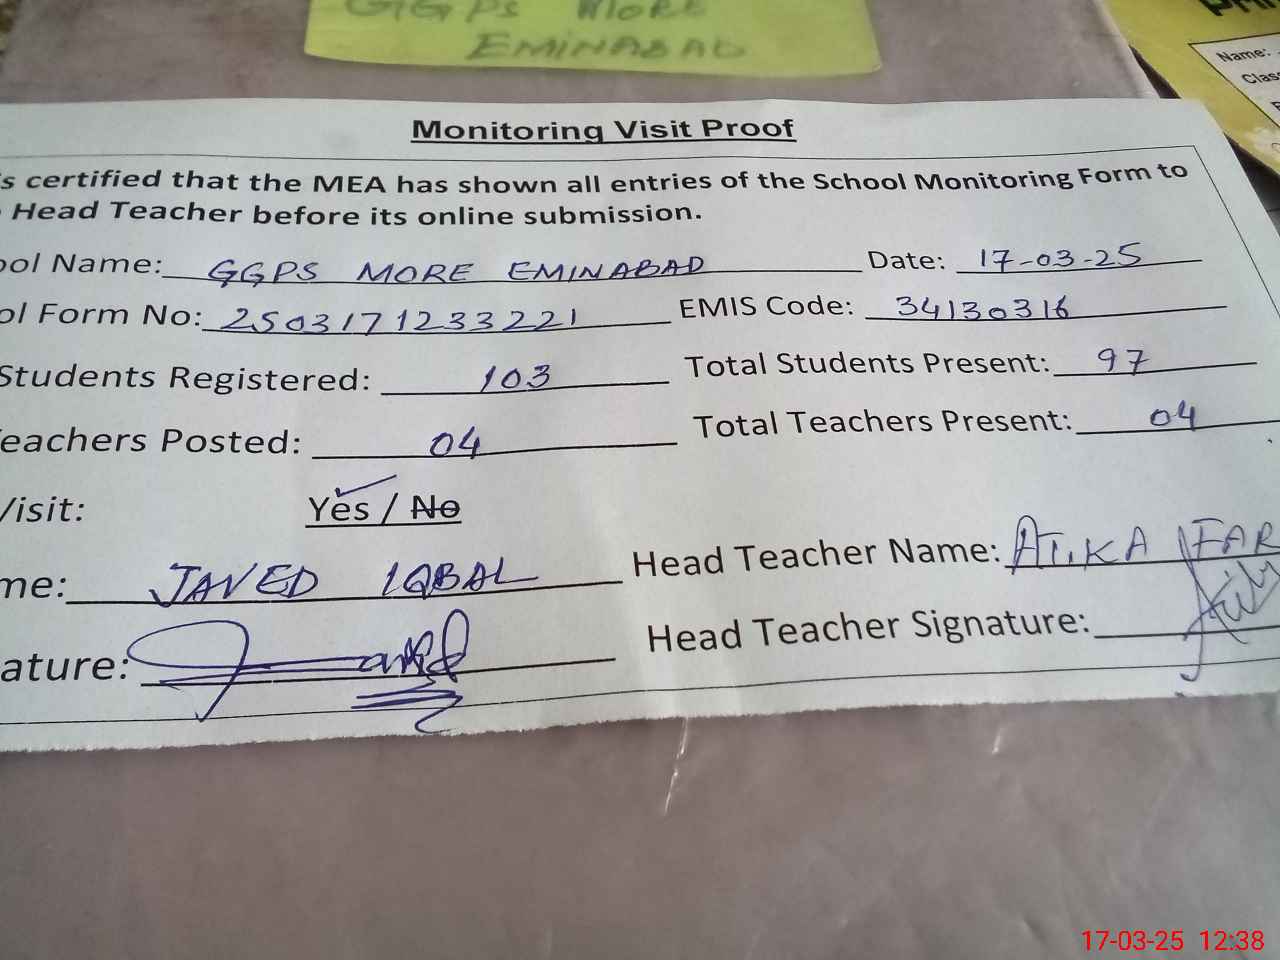 GGPS MORE
EMINABAD
Name:
Monitoring Visit Proof
s certified that the MEA has shown all entries of the School Monitoring Form to
Head Teacher before its online submission.
ool Name: GGPS MORE EMINABAD Date: 17-03-25
ol Form No: 2503171233221 EMIS Code: 34130316
Students Registered: 103 Total Students Present: 97
eachers Posted: 04 Total Teachers Present: 04
Visit: Yes / No
me: JAVED IQBAL Head Teacher Name: ATIKA FAR
ature: Head Teacher Signature:
17-03-25 12:38